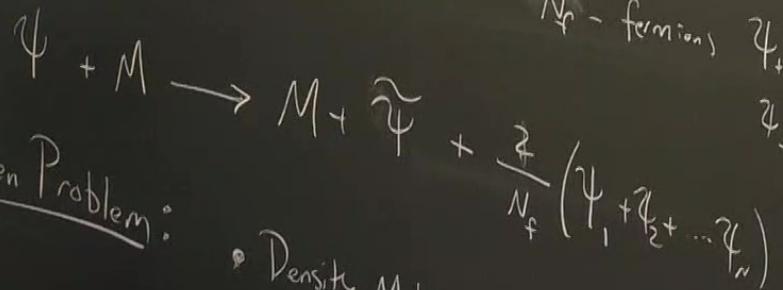 N_f - fermions ψ
ψ + M → M + ψ̃ + 2/N_f (ψ_1 + ψ_2 + ... ψ_N)
Problem:
• Density